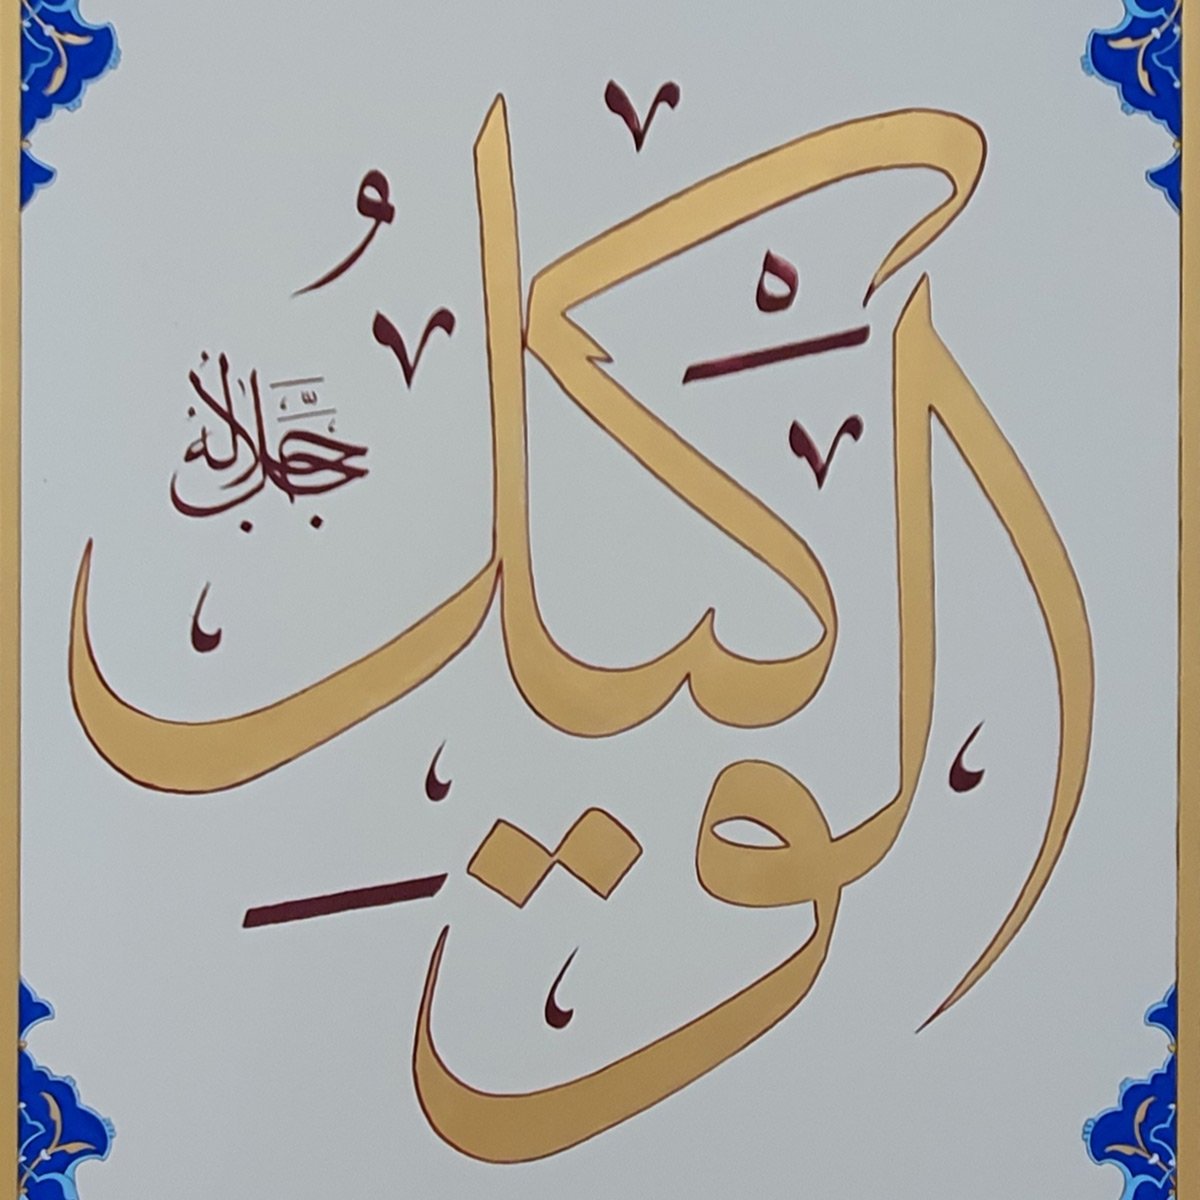 الْوَكِيلُ
جَلَّ جَلَالُهُ